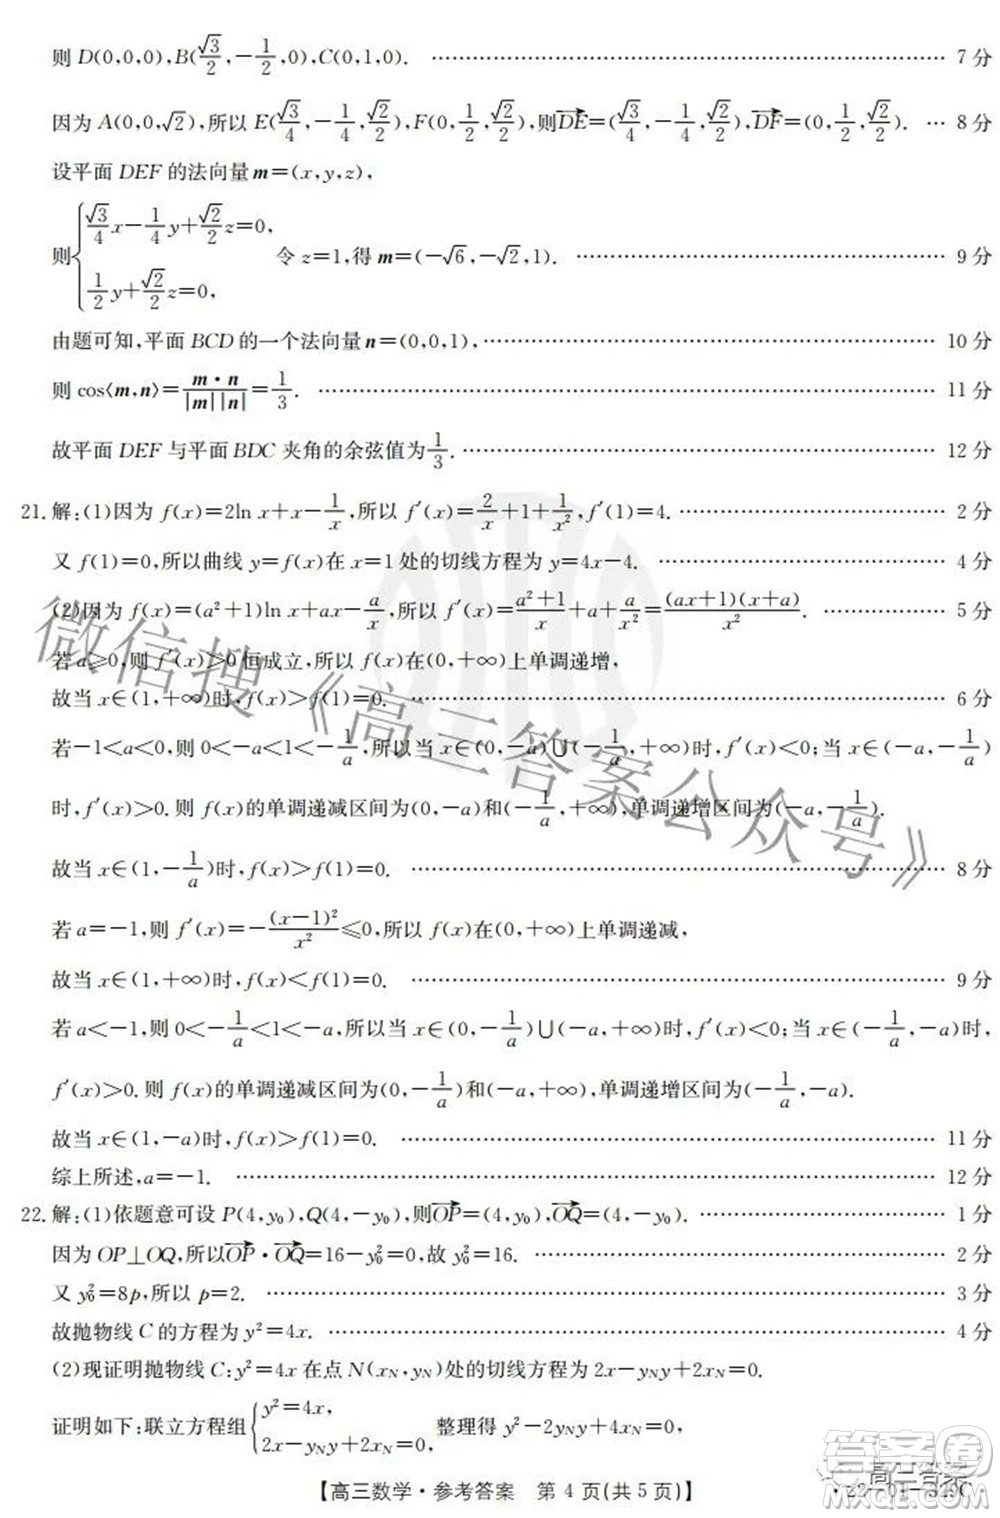 则 D(0,0,0),B(√3/2,-1/2,0),C(0,1,0). ………… 7 分
因为 A(0,0,√2),所以 E(√3/4,-1/4,√2/2),F(0,1/2,√2/2),则DE→=(√3/4,-1/4,√2/2),DF→=(0,1/2,√2/2). … 8 分
设平面 DEF 的法向量 m=(x,y,z),
则{√3/4x-1/4y+√2/2z=0,
1/2y+√2/2z=0,
令 z=1,得 m=(-√6,-√2,1). ………… 9 分
由题可知,平面 BCD 的一个法向量 n=(0,0,1), ………… 10 分
则 cos⟨m,n⟩=m·n/|m||n|=1/3. ………… 11 分
故平面 DEF 与平面 BDC 夹角的余弦值为1/3. ………… 12 分
21.解:(1)因为 f(x)=2ln x+x-1/x,所以 f′(x)=2/x+1+1/x²,f′(1)=4. ………… 2 分
又 f(1)=0,所以曲线 y=f(x)在 x=1 处的切线方程为 y=4x-4. ………… 4 分
(2)因为 f(x)=(a²+1)ln x+ax-a/x,所以 f′(x)=(a²+1)/x+a+a/x²=(ax+1)(x+a)/x². ………… 5 分
若 a≥0,则 f′(x)>0 恒成立,f(x)在(0,+∞)上单调递增,
故当 x∈(1,+∞)时,f(x)>f(1)=0. ………… 6 分
若-1<a<0,则 0<-a<1<-1/a,所以当 x∈(0,-a)∪(-1/a,+∞)时,f′(x)<0;当 x∈(-a,-1/a)
时,f′(x)>0.则 f(x)的单调递减区间为(0,-a)和(-1/a,+∞),单调递增区间为(-a,-1/a).
故当 x∈(1,-1/a)时,f(x)>f(1)=0. ………… 8 分
若 a=-1,则 f′(x)=-(x-1)²/x²≤0,所以 f(x)在(0,+∞)上单调递减,
故当 x∈(1,+∞)时,f(x)<f(1)=0. ………… 9 分
若 a<-1,则 0<-1/a<1<-a,所以当 x∈(0,-1/a)∪(-a,+∞)时,f′(x)<0;当 x∈(-1/a,-a)时,
f′(x)>0.则 f(x)的单调递减区间为(0,-1/a)和(-a,+∞),单调递增区间为(-1/a,-a).
故当 x∈(1,-a)时,f(x)>f(1)=0. ………… 11 分
综上所述,a=-1. ………… 12 分
22.解:(1)依题意可设 P(4,y₀),Q(4,-y₀),则OP→=(4,y₀),OQ→=(4,-y₀). ………… 1 分
因为 OP⊥OQ,所以OP→·OQ→=16-y₀²=0,故 y₀²=16. ………… 2 分
又 y₀²=8p,所以 p=2. ………… 3 分
故抛物线 C 的方程为 y²=4x. ………… 4 分
(2)现证明抛物线 C:y²=4x 在点 N(x_N,y_N)处的切线方程为 2x-y_Ny+2x_N=0.
证明如下:联立方程组{y²=4x,
2x-y_Ny+2x_N=0,
整理得 y²-2y_Ny+4x_N=0,
【高三数学·参考答案 第 4 页(共 5 页)】
·22-01-329C·
微信搜《高三答案公众号》
高三答案
答案圈
MXQE.COM